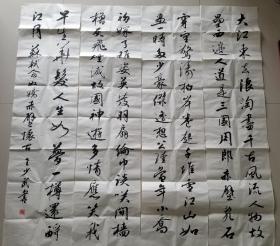 大江東去浪淘盡千古風流人物故
壘西邊人道是三國周郎赤壁亂石
穿空驚濤拍岸卷起千堆雪江山如
畫一時多少豪傑遙想公瑾當年小喬
初嫁了雄姿英發羽扇綸巾談笑間檣
櫓灰飛煙滅故國神遊多情應笑我
早生華髮人生如夢一樽還酹
江月 蘇軾念奴嬌赤壁懷古